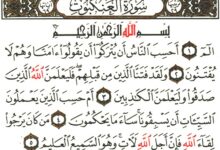 سُورَةُ العَنكَبُوتِ
بِسْمِ اللَّهِ الرَّحْمَٰنِ الرَّحِيمِ
الٓمٓ ١ أَحَسِبَ ٱلنَّاسُ أَن يُتْرَكُوٓا۟ أَن يَقُولُوٓا۟ ءَامَنَّا وَهُمْ لَا
يُفْتَنُونَ ٢ وَلَقَدْ فَتَنَّا ٱلَّذِينَ مِن قَبْلِهِمْ فَلَيَعْلَمَنَّ ٱللَّهُ ٱلَّذِينَ
صَدَقُوا۟ وَلَيَعْلَمَنَّ ٱلْكَٰذِبِينَ ٣ أَمْ حَسِبَ ٱلَّذِينَ يَعْمَلُونَ
ٱلسَّيِّـَٔاتِ أَن يَسْبِقُونَا سَآءَ مَا يَحْكُمُونَ ٤ مَن كَانَ يَرْجُوا۟
لِقَآءَ ٱللَّهِ فَإِنَّ أَجَلَ ٱللَّهِ لَـَٔاتٍ وَهُوَ ٱلسَّمِيعُ ٱلْعَلِيمُ ٥